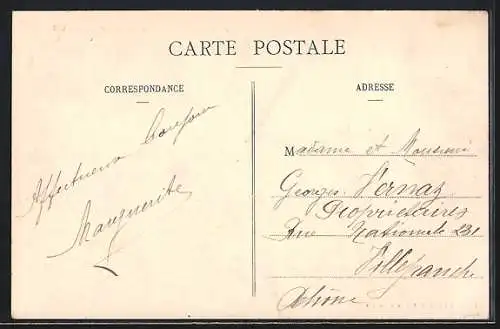 CARTE POSTALE
CORRESPONDANCE
ADRESSE
Affectueux Bonjour
Marguerite
Madame et Monsieur
Georges Vernay
Propriétaires
Rue Nationale 231
Villefranche
Rhône